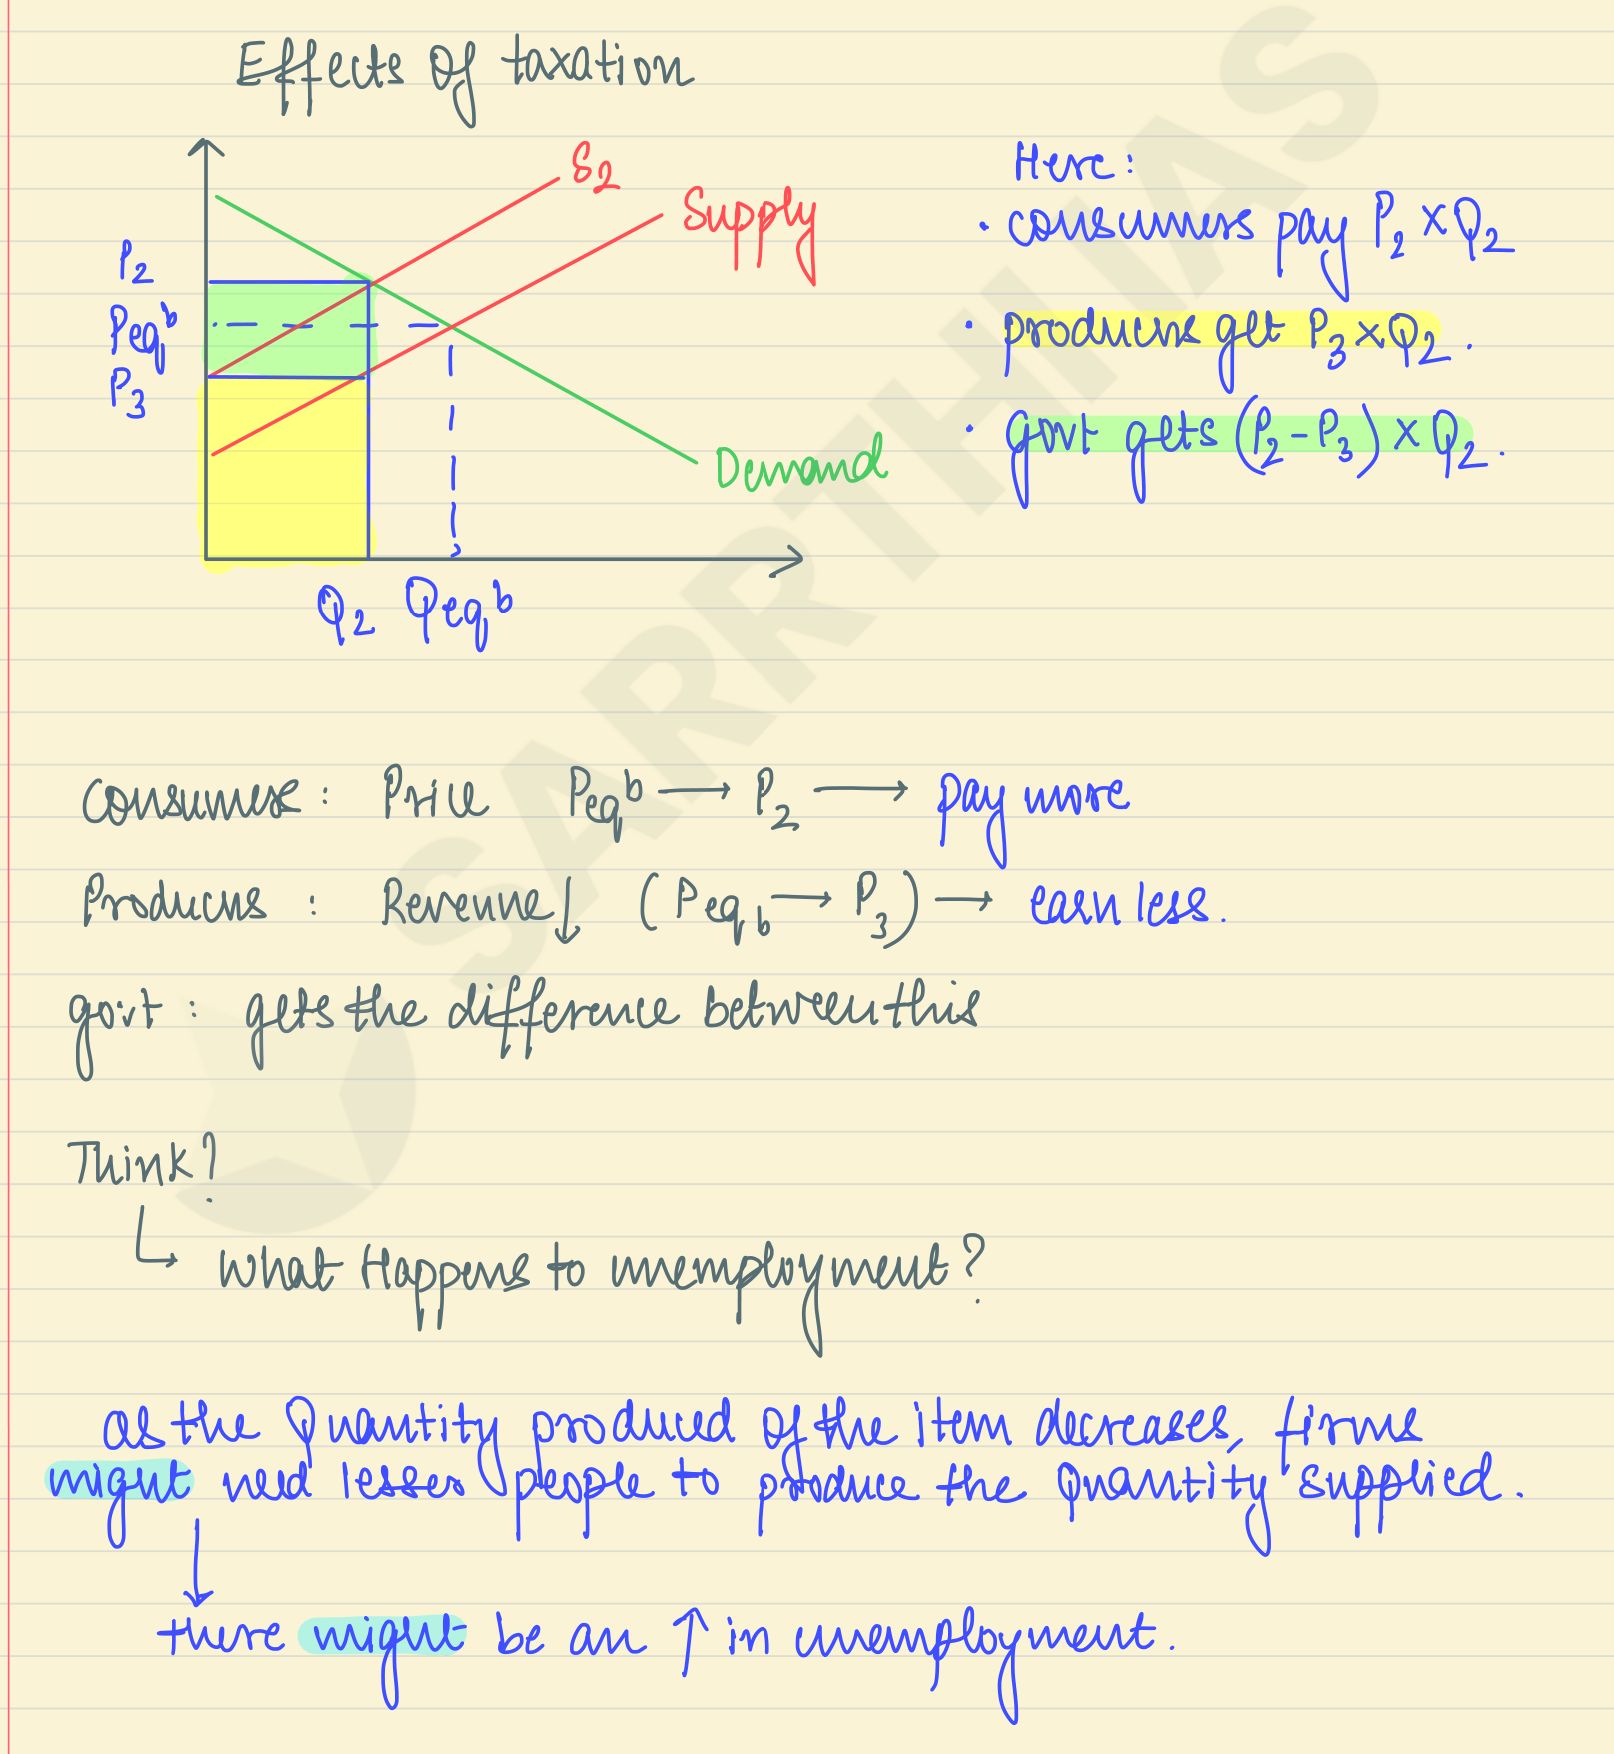 Effects of taxation
S2
Supply
P2
Peqb
P3
Demand
Q2 Qeqb
Here:
• consumers pay P2 × Q2
• producers get P3 × Q2.
• govt gets (P2 - P3) × Q2.
Consumers: Price Peqb → P2 → pay more
Producers : Revenue ↓ (Peqb → P3) → earn less.
govt : gets the difference between this
Think?
↳ What Happens to unemployment?
as the Quantity produced of the item decreases, firms
might need lesser people to produce the Quantity supplied.
↓
there might be an ↑ in unemployment.
SARRTHI IAS